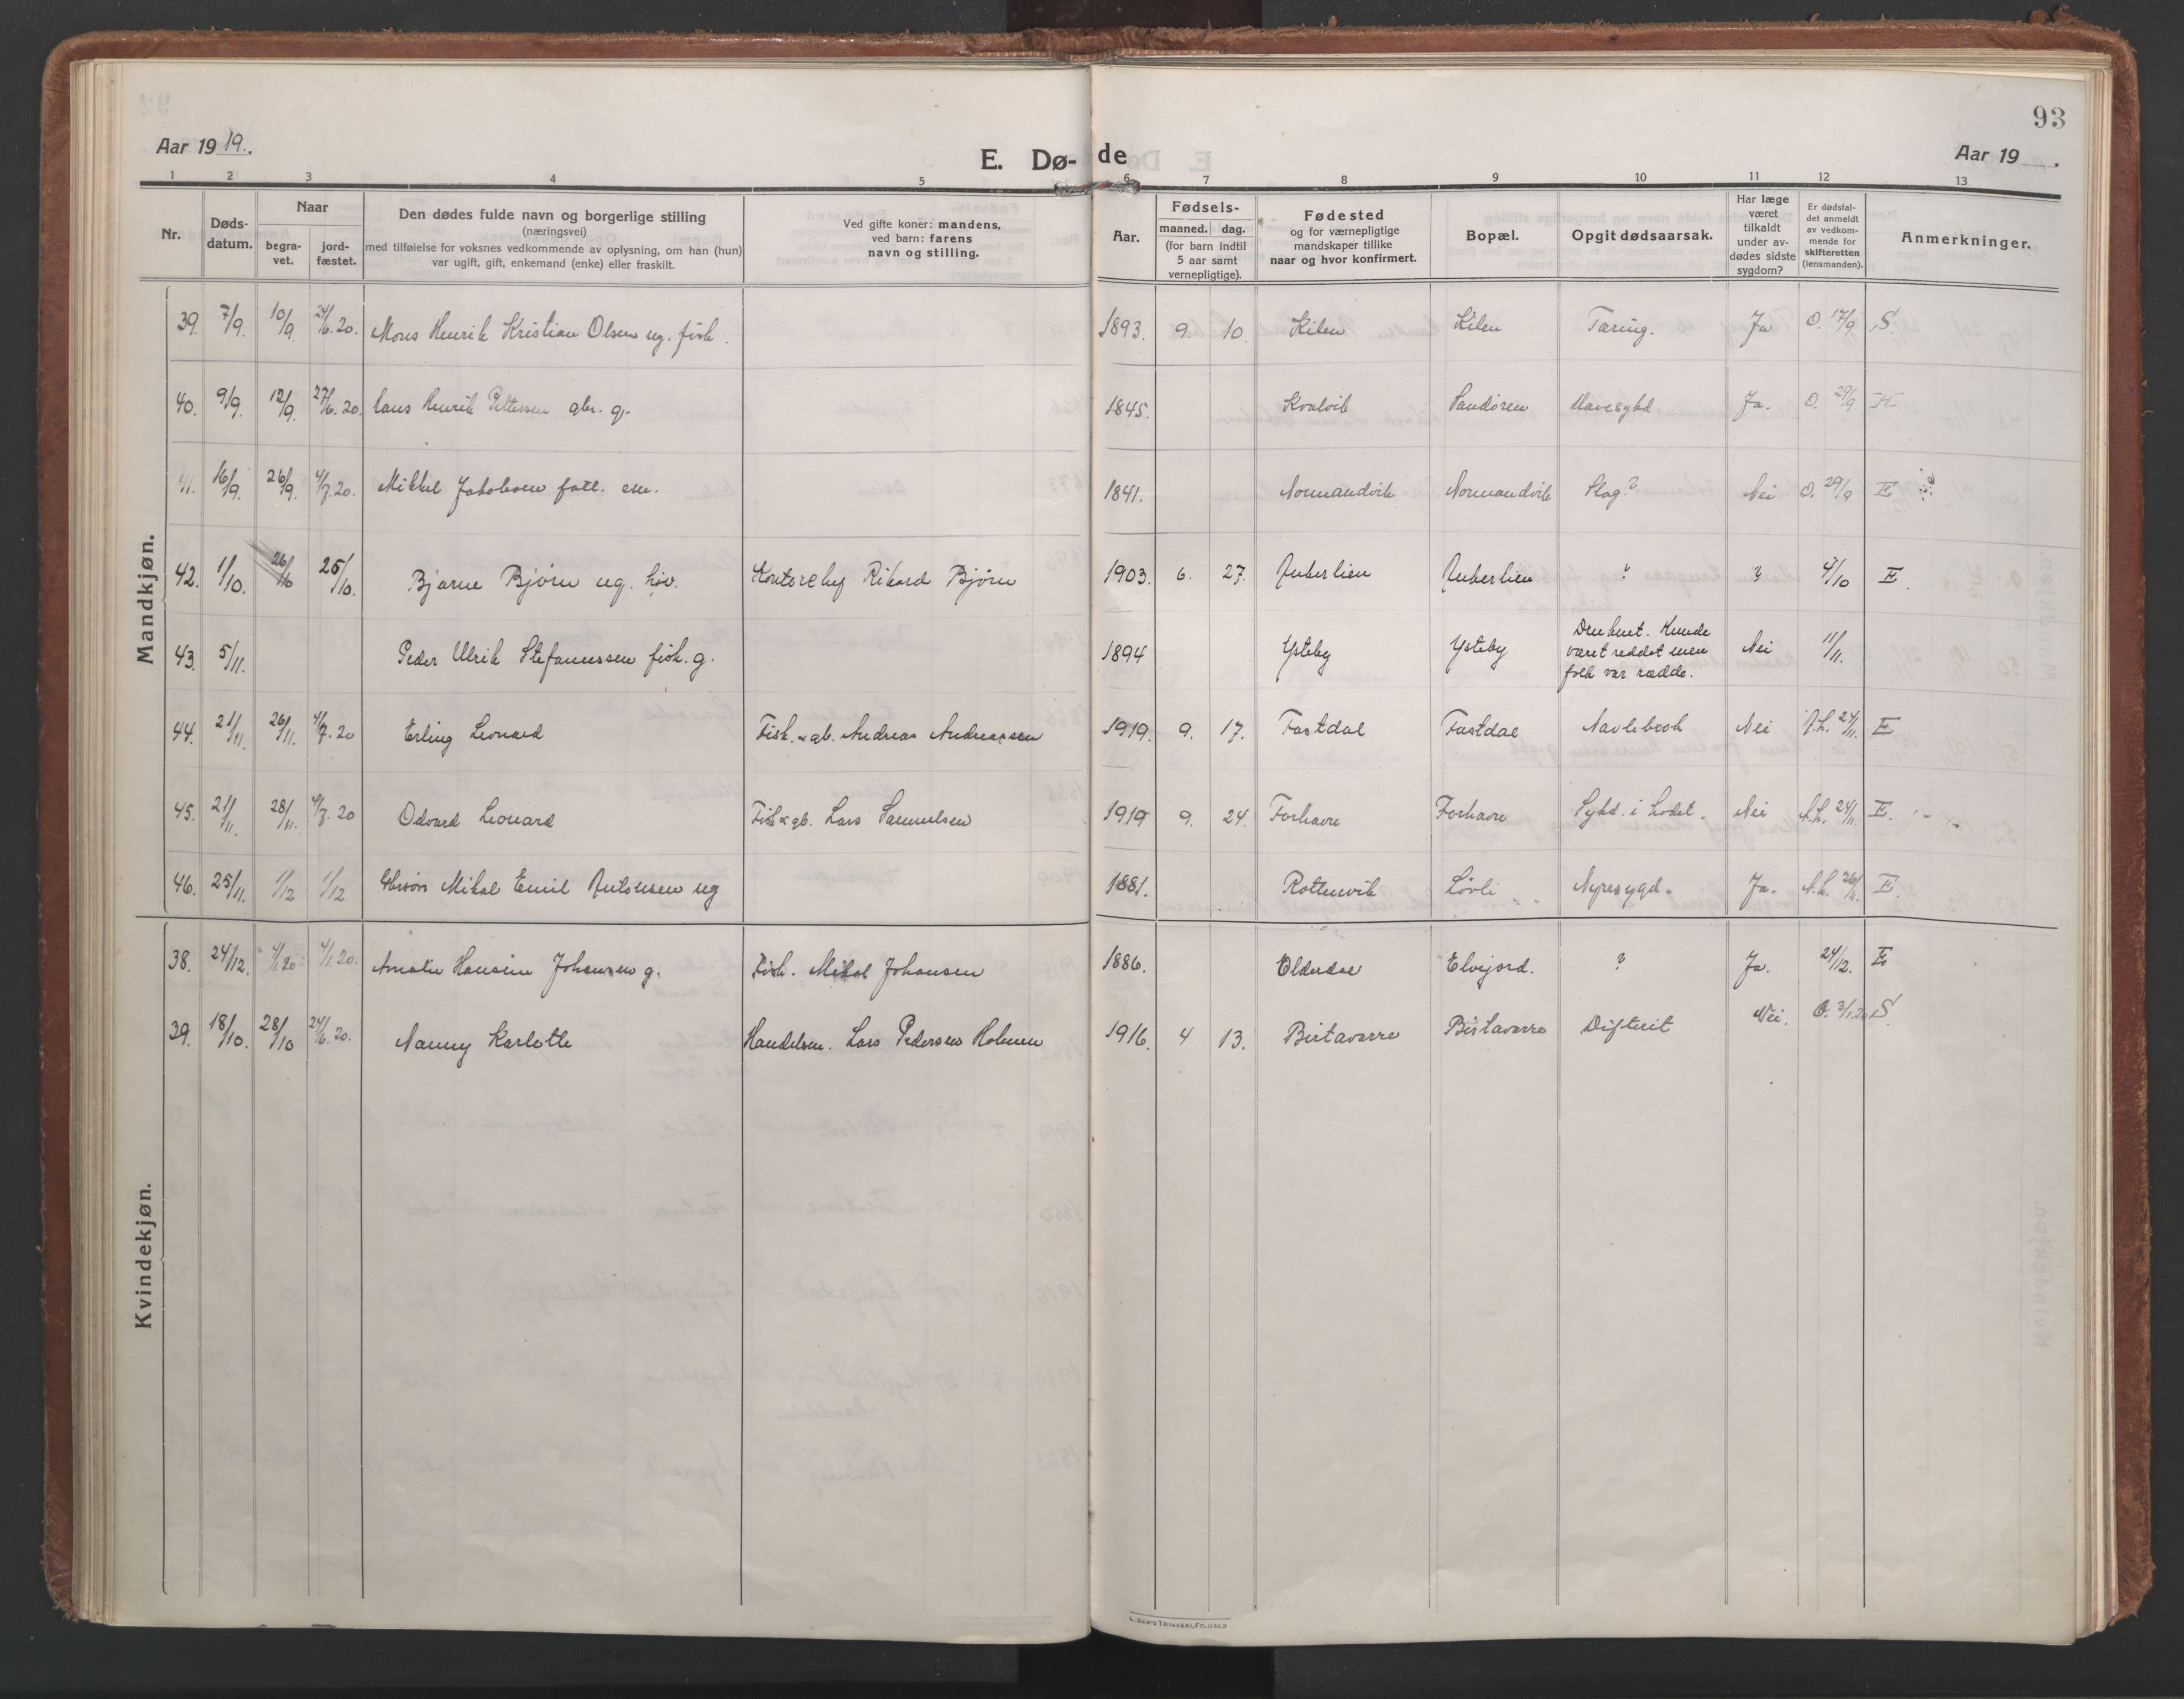 93
Aar 1919.
E. Dø-de
Aar 19 .
1 2 3 4 5 6 7 8 9 10 11 12 13
Nr.
Døds-
datum.
Naar
begra-
vet.
jord-
fæstet.
Den dødes fulde navn og borgerlige stilling
(næringsvei)
med tilføielse for voksnes vedkommende av oplysning, om han (hun)
var ugift, gift, enkemand (enke) eller fraskilt.
Ved gifte koner: mandens,
ved barn: farens
navn og stilling.
Aar.
Fødsels-
maaned. dag.
(for barn indtil
5 aar samt
vernepligtige).
Fødested
og for værnepligtige
mandskaper tillike
naar og hvor konfirmert.
Bopæl.
Opgit dødsaarsak.
Har læge
været
tilkaldt
under av-
dødes sidste
sygdom?
Er dødsfal-
det anmeldt
av vedkom-
mende for
skifteretten
(lensmanden).
Anmerkninger.
Mandkjøn.
39. 7/9. 10/9. 24/6.20. Mons Henrik Kristian Olsen ug. fisk. 1893. 9. 10. Kilen Kilen Tæring. Ja O. 17/9. S.
40. 9/9. 12/9. 27/6.20. Hans Henrik Pettersen gbr. g. 1845. Kvalvik Sandøren Mavesykd. Ja. O. 29/9
41. 16/9. 26/9. 4/7.20. Mikkel Jakobsen fatt. em. 1841. Normandvik Normandvik Slag? Nei O. 29/9 E
42. 1/10. 26/10 25/10. Bjarne Bjørn ug. Kontorchef Rikard Bjørn 1903. 6. 27. ? ? 4/10 E.
43. 5/11. Peder Ulrik Stefanussen fisk. g. 1894 Ysteby Ysteby Druknet. Kunde
været reddet men
folk var rædde. Nei 11/11.
44. 21/11. 26/11. 4/7.20 Erling Leonard Fisk. & gb. Andreas Andreassen 1919. 9. 17. Fastdal Fastdal Navlebrok Nei 24/11. E
45. 21/11. 28/11. 4/7.20 Odvard Leonard Fisk & gb. Lars Samuelsen 1919 9. 24. Sykd. i hodet. Nei 24/11. E.
46. 25/11. 1/12 1/12. Mikal Emil Antonsen ug 1881. Rottenvik Løvli Nyresygd. Ja. E.
Kvindekjøn.
38. 24/12. 4/1.20 4/1.20. Amalie Hansine Johansen g. Fisk. Mikal Johansen 1886. Olderdal Elvejord. ? Ja. 24/12. E
39. 18/10. 28/10 24/6.20. Nanny Karlotte Handelsm. Lars Pedersen Holmen 1916. 4 13. Birtavarre Birtavarre Difterit Nei. O. 3/1.20 S.